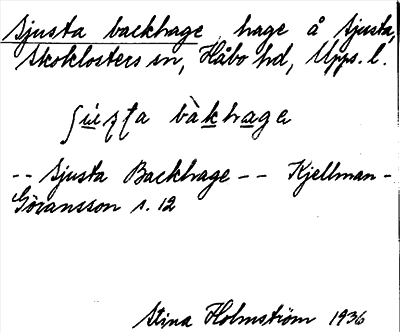 Sjusta backhage hage å Sjusta,
Skoklosters sn, Håbo hd, Upps. l.
ʃu̇sta bàkhage
-- Sjusta Backhage -- Kjellman-
Göransson s. 12
Stina Holmström 1936